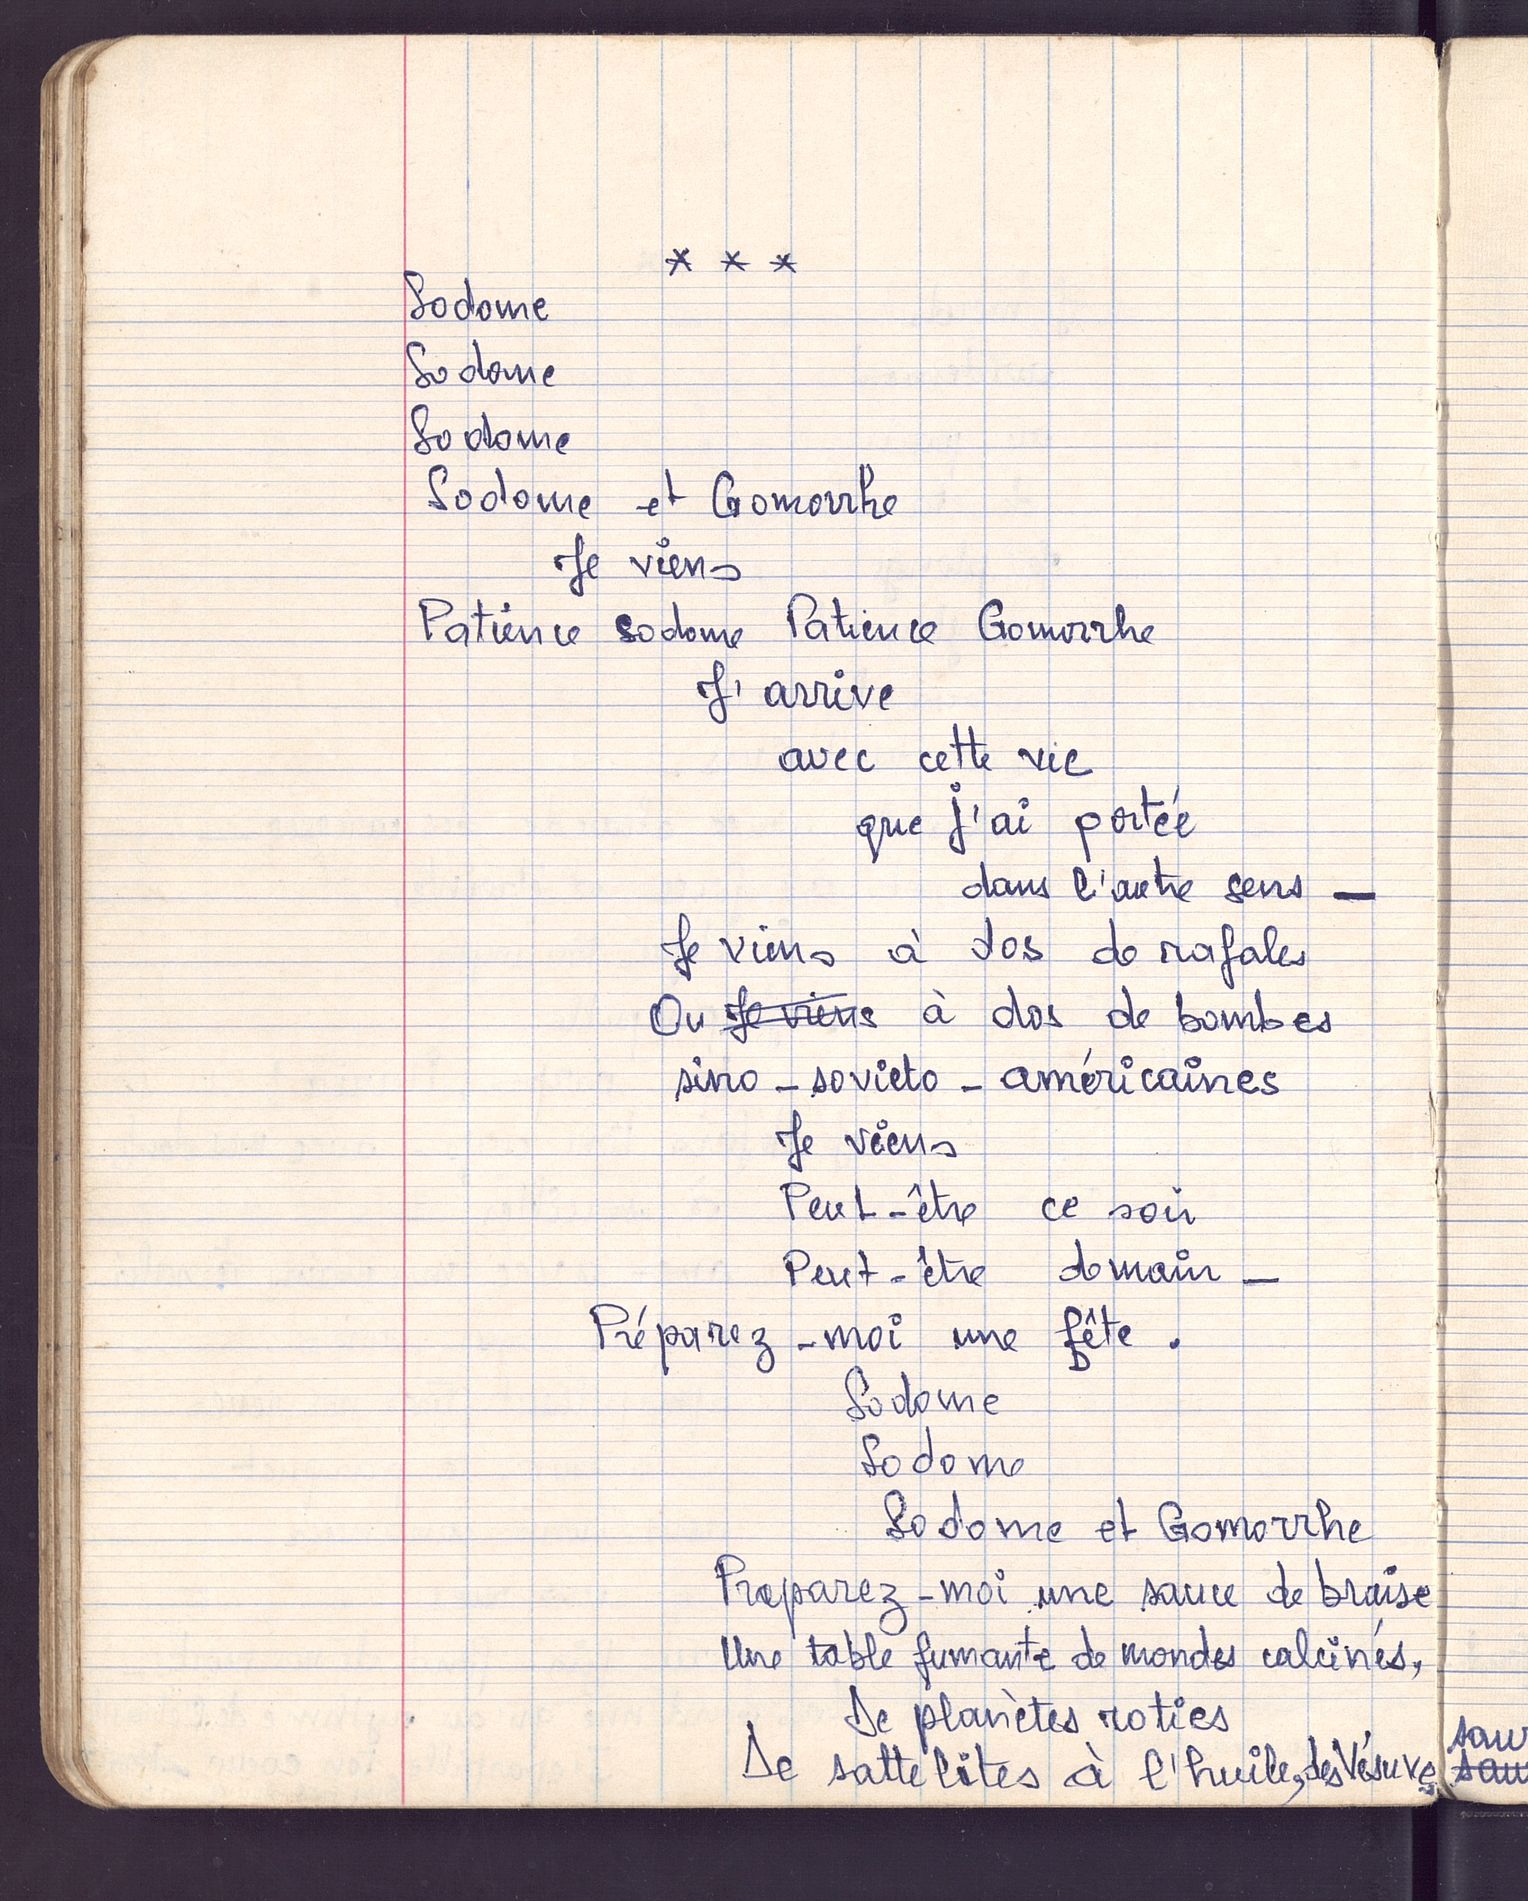 * * *
Sodome
Sodome
Sodome
Sodome et Gomorrhe
Je viens
Patience sodome Patience Gomorrhe
J'arrive
avec cette vie
que j'ai portée
dans l'autre sens —
Je viens à dos de rafales
Ou Je viens à dos de bombes
sino - sovieto - américaines
Je viens
Peut-être ce soir
Peut-être demain —
Préparez-moi une fête.
Sodome
Sodome
Sodome et Gomorrhe
Preparez-moi une sauce de braise
Une table fumante de mondes calcinés,
De planètes roties
De sattelites à l'huile, des Vésuves